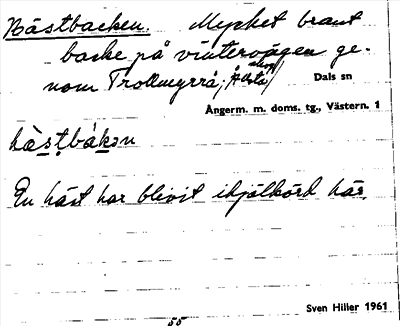 Hästbacken. Mycket brant
backe på vintervägen ge-
nom Trollmyrrå,
Dals sn
Ångerm. m. doms. tg., Västern. 1
En häst har blivit ihjälkörd här.
Sven Hiller 1961
55